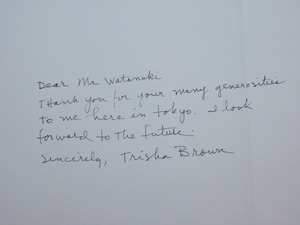 Dear Mr Watanuki
Thank you for your many generosities
to me here in tokyo. I look
forward to the future.
Sincerely, Trisha Brown